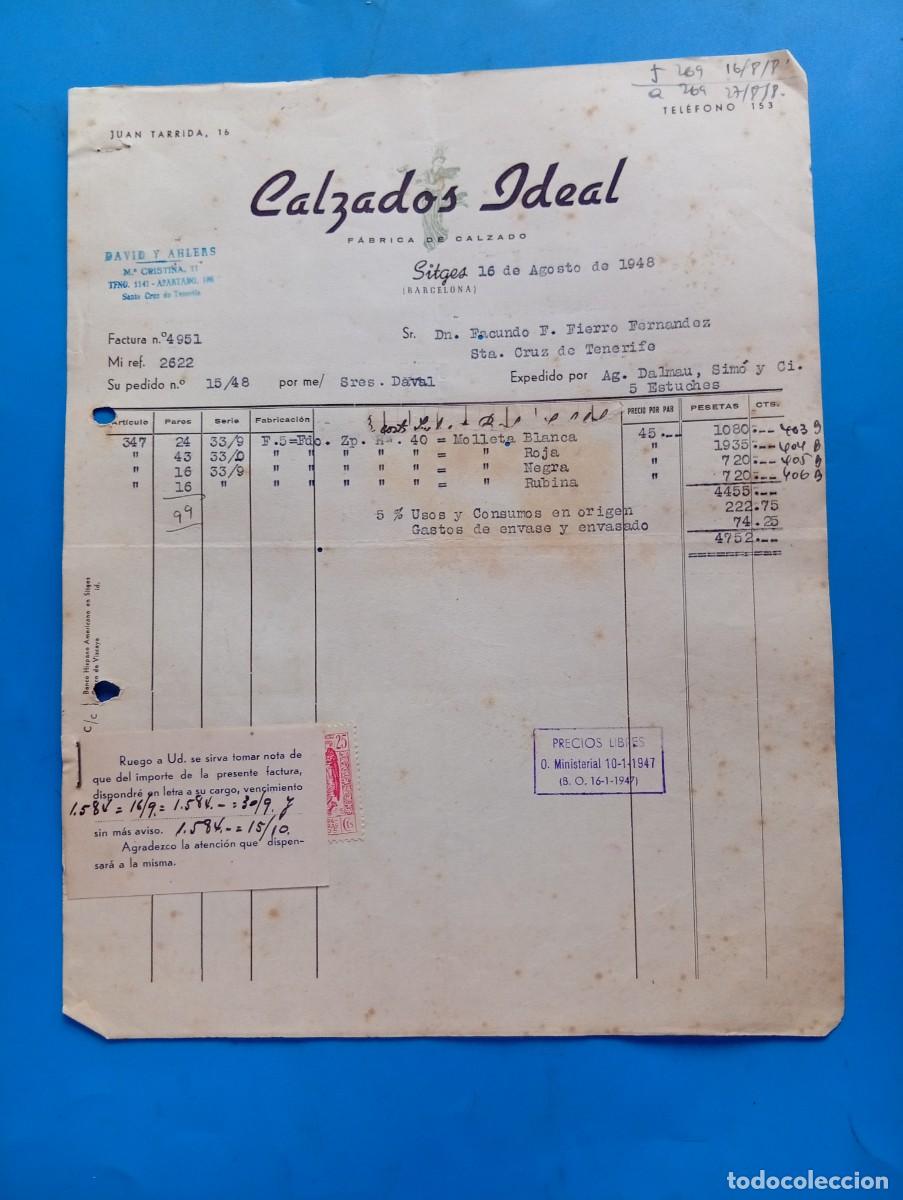 J 269 16/8/8'
Q 269 27/8/8.
JUAN TARRIDA, 16
TELÉFONO 153
Calzados Ideal
FÁBRICA DE CALZADO
DAVID Y AHLERS
M.ª CRISTINA, 11
TFNO. 1141 - APARTADO, 196
Santa Cruz de Tenerife
Sitges 16 de Agosto de 1948
(BARCELONA)
Factura n.º 4951
Sr. Dn. Facundo F. Fierro Fernandez
Mi ref. 2622
Sta. Cruz de Tenerife
Su pedido n.º 15/48 por me/ Sres. Daval Expedido por Ag. Dalmau, Simó y Ci.
5 Estuches
Artículo Pares Serie Fabricación PRECIO POR PAR PESETAS CTS.
347 24 33/9 F.5=Fdo. Zp. 40 = Molleta Blanca 45.-- 1080.-- 403 B
" 43 33/0 " " " " " = " Roja " 1935.-- 404 B
" 16 33/9 " " " " " = " Negra " 720.-- 405 B
" 16 " " " " " " = " Rubina " 720.-- 406 B
99 4455.--
5 % Usos y Consumos en origen 222.75
Gastos de envase y envasado 74.25
4752.--
C/c Banco Hispano Americano en Sitges
de Vizcaya id.
Ruego a Ud. se sirva tomar nota de
que del importe de la presente factura,
dispondré en letra a su cargo, vencimiento
1.584 = 16/9 = 1.584.- = 30/9. y
sin más aviso. 1.584.- = 15/10.
Agradezco la atención que dispen-
sará a la misma.
25
Cts
PRECIOS LIBRES
O. Ministerial 10-1-1947
(B. O. 16-1-1947)
todocoleccion